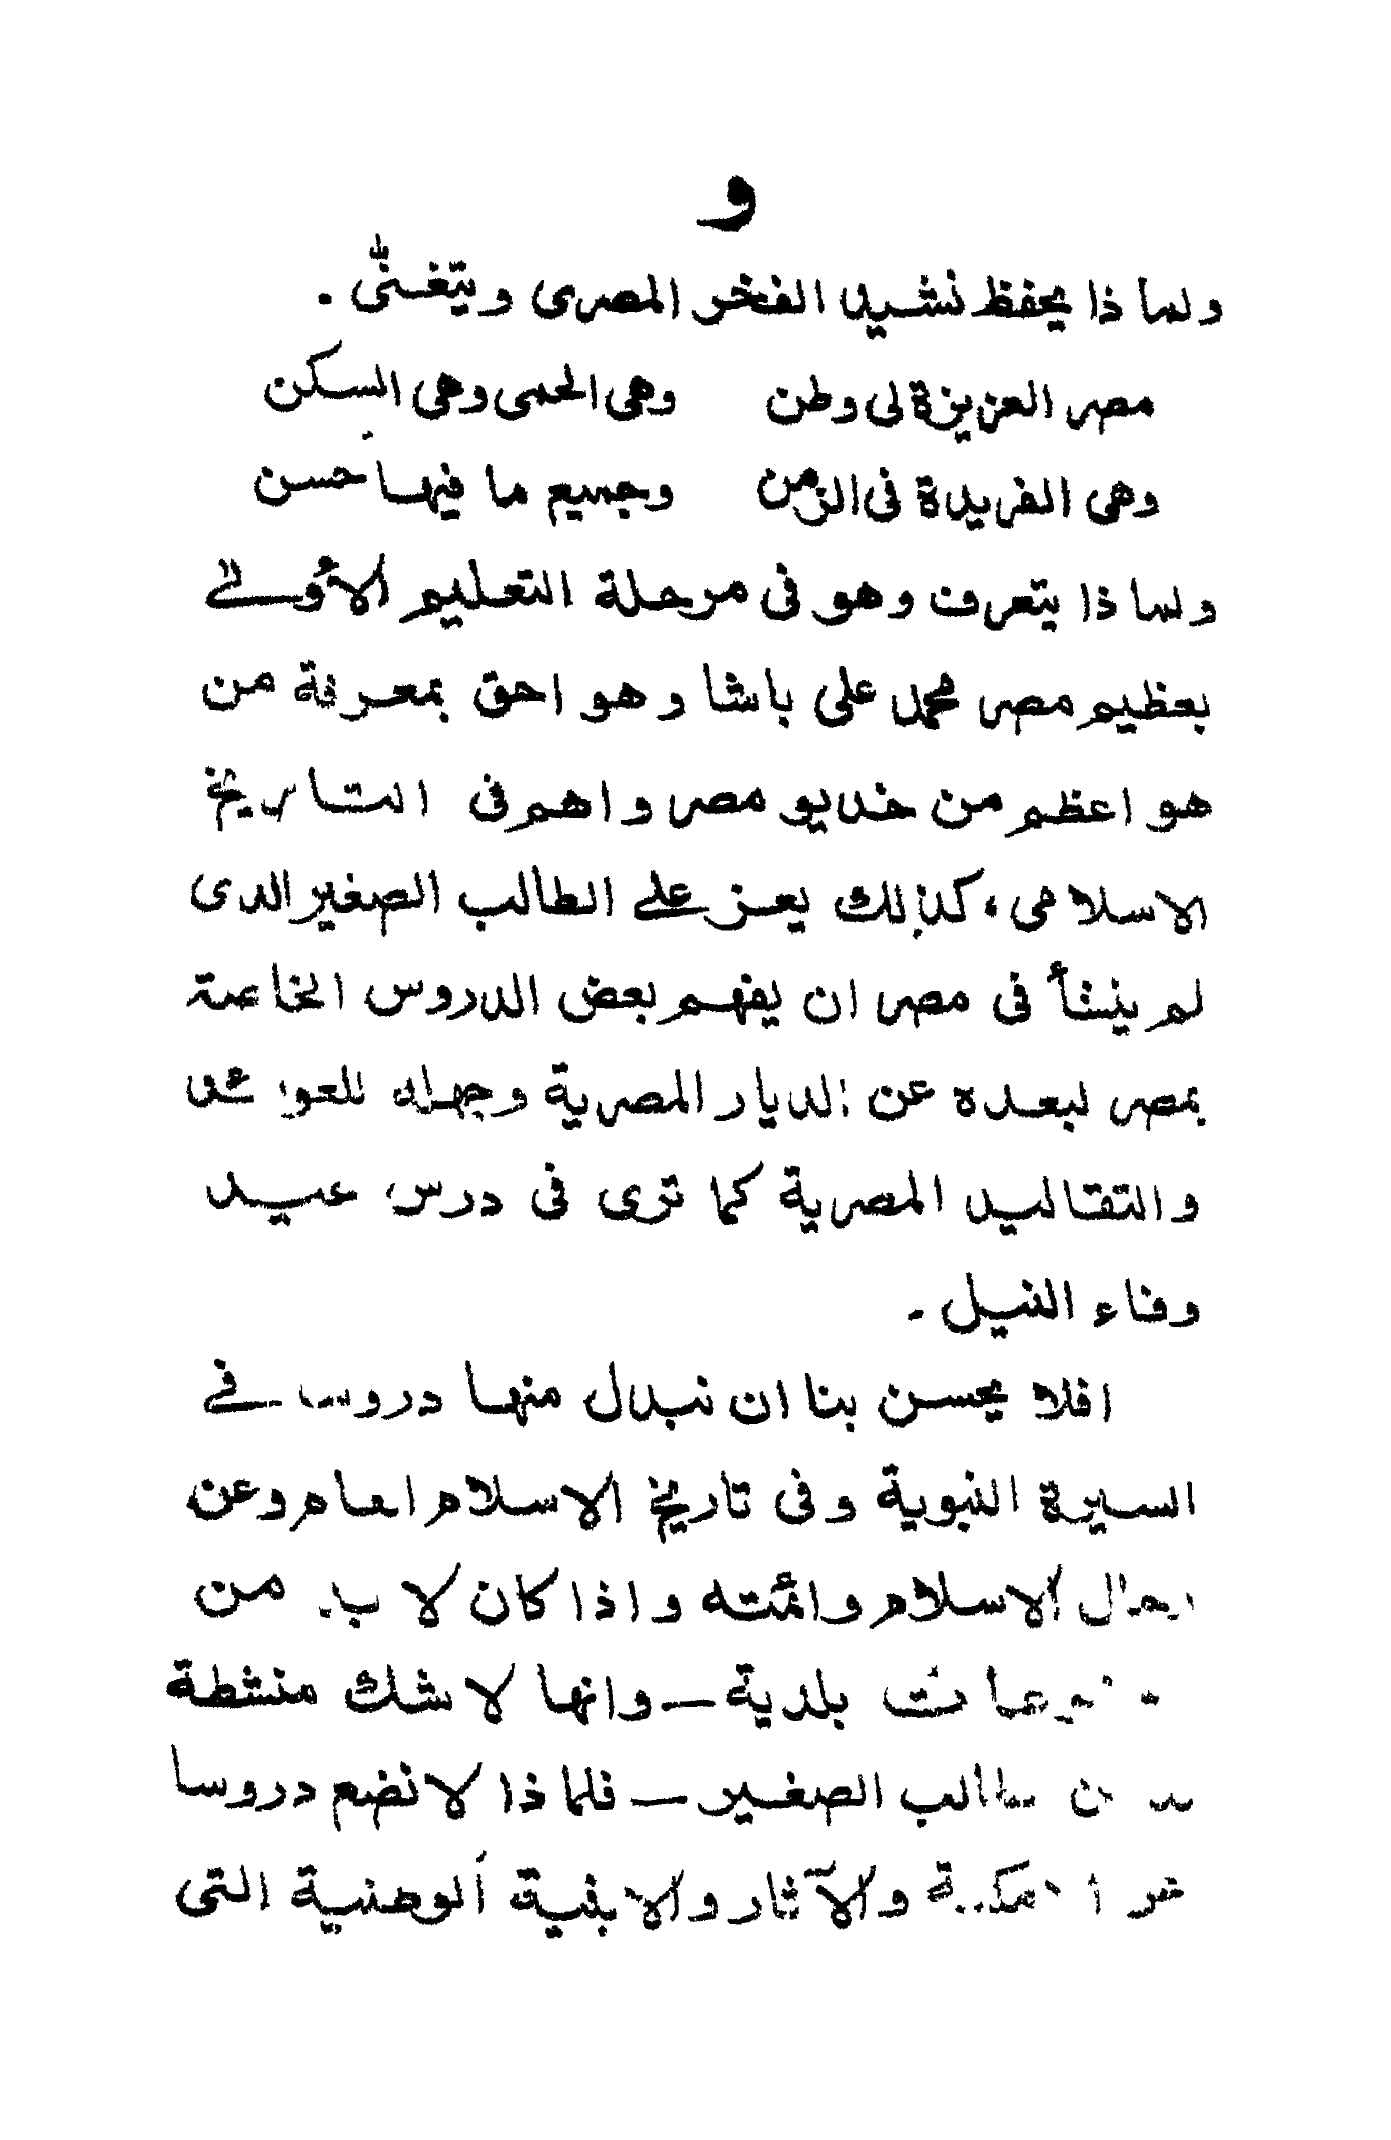 و
ولماذا يحفظ نشيد الفخر المصرى ويتغنّى .
مصر العزيزة لى وطن وهى الحمى وهى السكن
وهى الفريدة فى الزمن وجميع ما فيها حسن
ولماذا يتعرف وهو فى مرحلة التعليم الأولى
بعظيم مصر محمد على باشا وهو احق بمعرفة من
هو اعظم من خديو مصر واهم فى التاريخ
الاسلامى، كذلك يعز على الطالب الصغير الذى
لم ينشأ فى مصر ان يفهم بعض الدروس الخاصة
بمصر لبعده عن الديار المصرية وجهله للعوائد
والتقاليد المصرية كما ترى فى درس عيد
وفاء النيل .
افلا يحسن بنا ان نبدل منها دروسا فى
السيرة النبوية وفى تاريخ الاسلام العام وعن
رجال الاسلام وائمته واذا كان لا بد من
بلدية — وانها لا شك منشطة
الصغير — فلماذا لا نضع دروسا
والآثار والابنية الوطنية التى